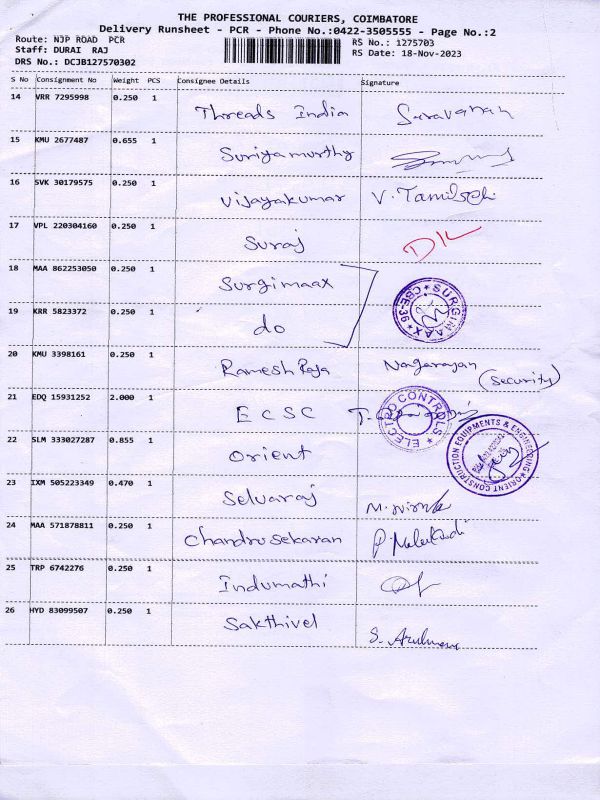 THE PROFESSIONAL COURIERS, COIMBATORE
Delivery Runsheet - PCR - Phone No.:0422-3505555 - Page No.:2
Route: NJP ROAD PCR
Staff: DURAI RAJ
RS No.: 1275703
RS Date: 18-Nov-2023
DRS No.: DCJB127570302
S No Consignment No Weight PCS Consignee Details Signature
14 VRR 7295998 0.250 1 Threads India Saravanan
15 KMU 2677487 0.655 1 Suriyamurthy
16 SVK 30179575 0.250 1 Vijayakumar V. Tamilselvi
17 VPL 220304160 0.250 1 Suraj
18 MAA 862253050 0.250 1 Surgimaax
SURGIMAAX ★ CBE-39 ★
19 KRR 5823372 0.250 1 do
20 KMU 3398161 0.250 1 Ramesh Raja Nagarajan (Security)
21 EDQ 15931252 2.000 1 E C S C
★ ELECTRO CONTROLS ★
22 SLM 333027287 0.855 1 Orient
ORIENT CONSTRUCTION EQUIPMENTS & ENGINEERING
23 IXM 505223349 0.470 1 Selvaraj
24 MAA 571878811 0.250 1 Chandrusekaran
25 TRP 6742276 0.250 1 Indumathi
26 HYD 83099507 0.250 1 Sakthivel